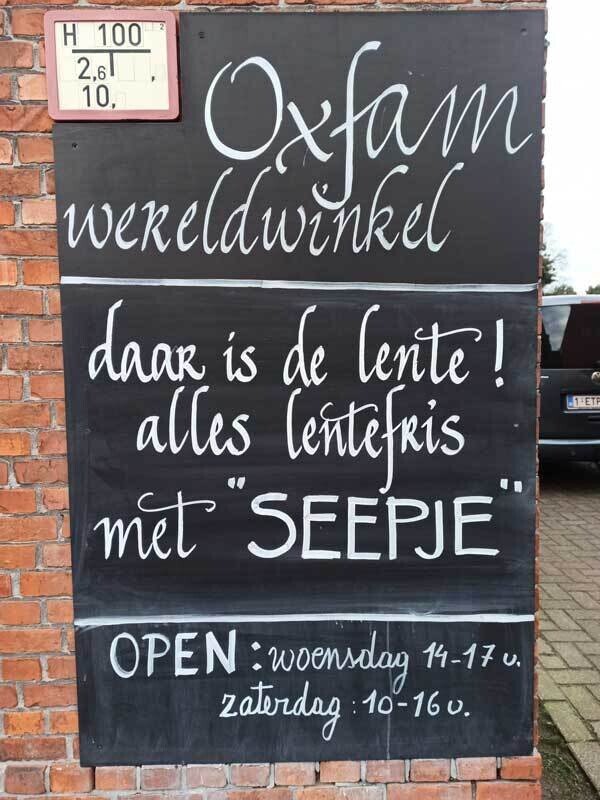 H 100
2,6 ,
10,
Oxfam
wereldwinkel
daar is de lente!
alles lentefris
met "SEEPJE"
OPEN: woensdag 14-17 u.
zaterdag: 10-16 u.
1-ETP